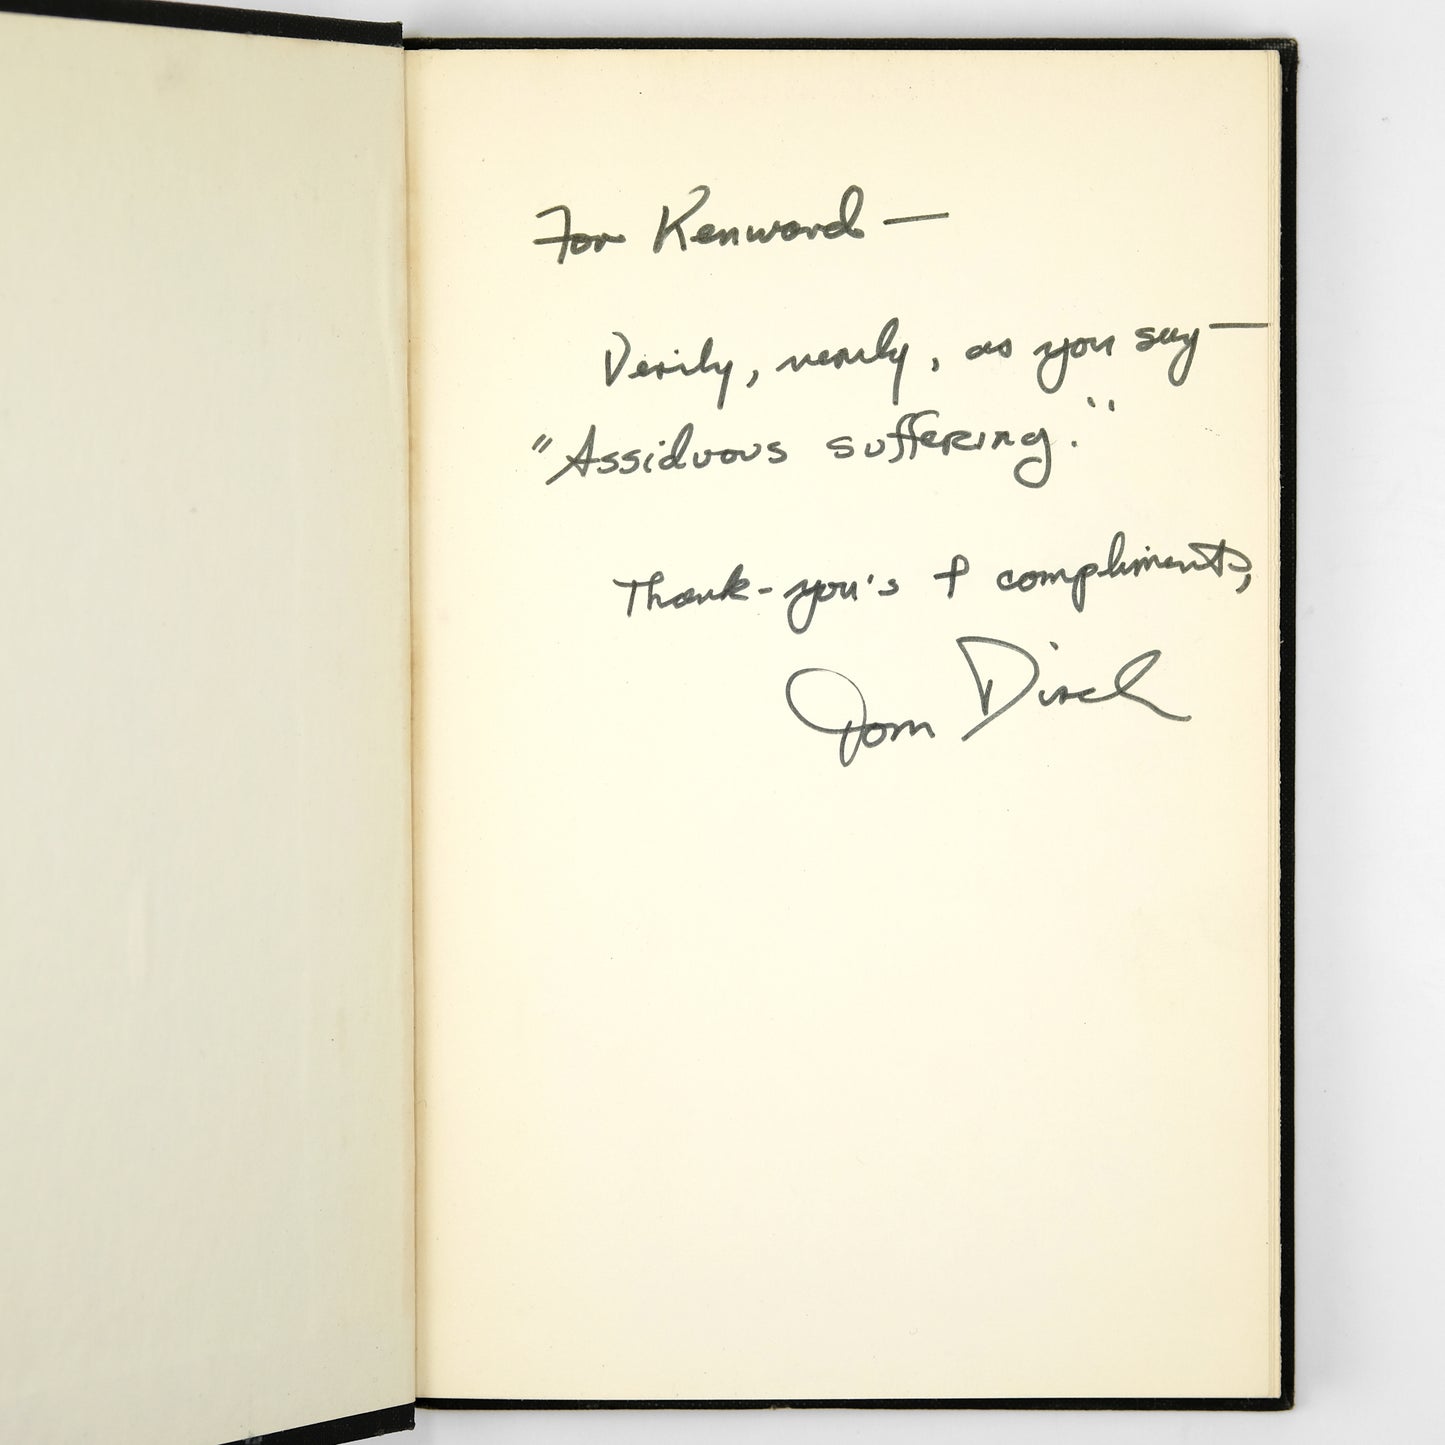 For Kenward —
Verily, verily, as you say —
"Assiduous suffering."
Thank-you's & compliments,
Tom Disch